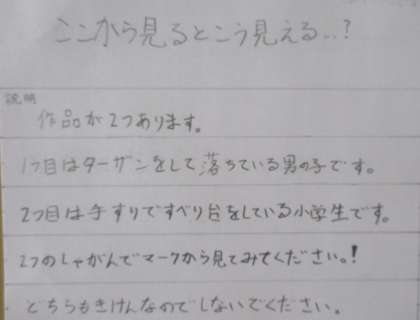 ここから見るとこう見える..?
説明
作品が2つあります。
1つ目はターザンをして落ちている男の子です。
2つ目は手すりですべり台をしている小学生です。
2つのしゃがんでマークから見てみてください。!
どちらもきけんなのでしないでください。